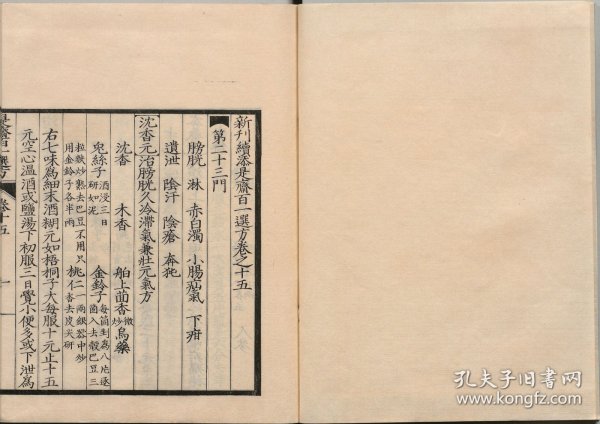 新刊續添是齋百一選方卷之十五
第二十三門
膀胱 淋 赤白濁 小腸疝氣 下疳
遺泄 陰汗 陰瘡 奔㹠
沈香元治膀胱久冷滯氣兼壯元氣方
沈香 木香 舶上茴香微炒 烏藥
兔絲子酒浸三日研如泥 金鈴子每箇剉為八片逐箇入去殼巴豆三
粒麩炒熟去巴豆不用只用金鈴子各半兩 桃仁二一兩銀器中炒香去皮尖研
右七味為細末酒糊元如梧桐子大每服十元止十五
元空心溫酒或鹽湯下初服三日覺小便多或下泄為
是齋百一選方 卷十五 一
孔夫子旧书网
www.kongfz.com